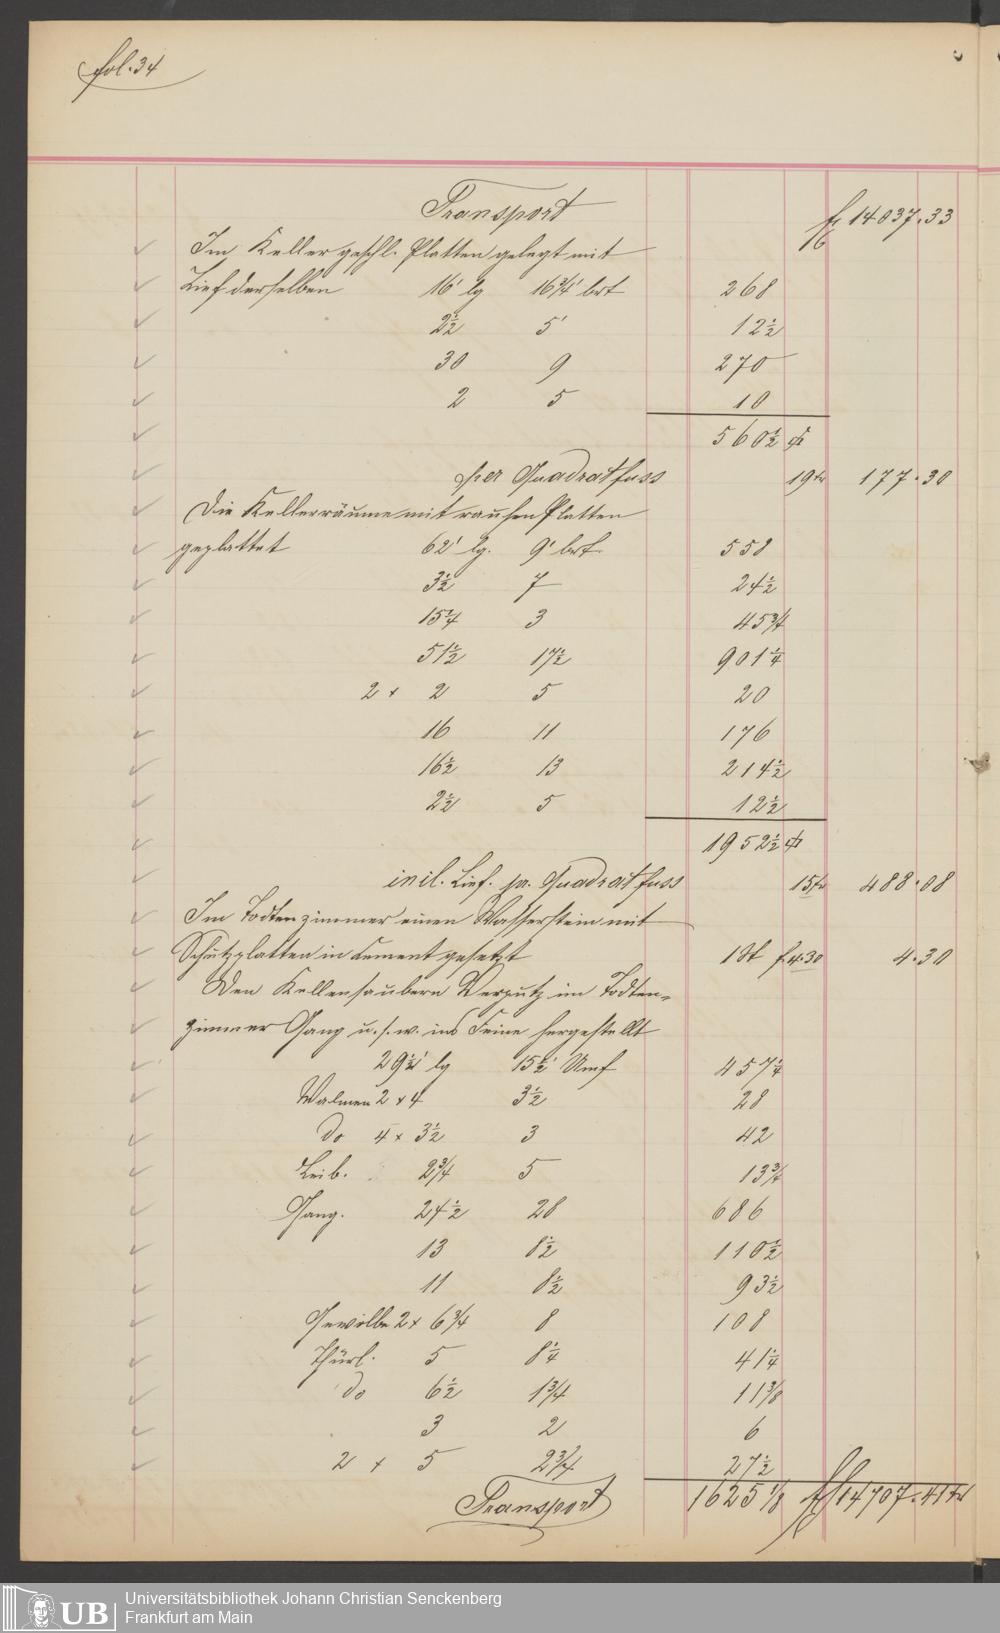 fol. 34
Transport f 14037.33
Im Keller geschl. Platten gelegt mit
Lief derselben 16' lg 16 3/4' brt 268
2 1/2 5' 12 1/2
30 9 270
2 5 10
560 1/2
per Quadratfuss 19 kr 177.30
Die Kellerräume mit rauhen Platten
geplattet 62' lg. 9' brt. 558
3 1/2 7 24 1/2
15 1/4 3 45 3/4
51 1/2 17 1/2 901 1/4
2 x 2 5 20
16 11 176
16 1/2 13 214 1/2
2 1/2 5 12 1/2
1952 1/2
incl. Lief. pr. Quadratfuss 15 kr 488.08
Im Todtenzimmer einen Wasserstein mit
Schutzplatten in Cement gesetzt 1 St f 4.30 4.30
Den Verputz im Todten-
zimmer Gang u. s. w. ins Feine hergestellt
29 1/2' lg 15 1/2' Umf 457 1/4
2 x 4 3 1/2 28
do 4 x 3 1/2 3 42
Leib. 2 3/4 5 13 3/4
Gang. 24 1/2 28 686
13 8 1/2 110 1/2
11 8 1/2 93 1/2
Gewölbe 2 x 6 3/4 8 108
Thürl. 5 8 1/4 41 1/4
do 6 1/2 1 3/4 11 3/8
3 2 6
2 x 5 2 3/4 27 1/2
Transport 1625 1/8 f 14707.41 kr
UB
Universitätsbibliothek Johann Christian Senckenberg
Frankfurt am Main